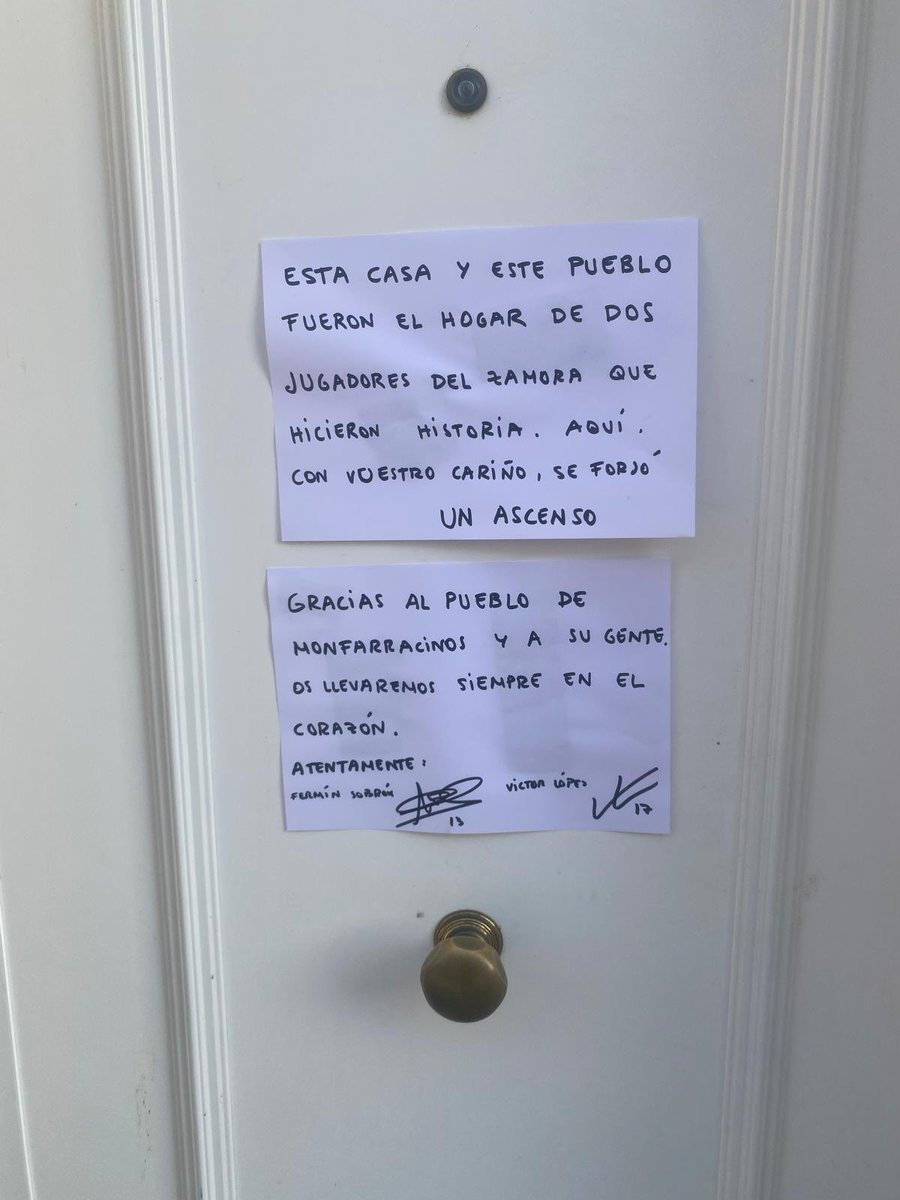 ESTA CASA Y ESTE PUEBLO
FUERON EL HOGAR DE DOS
JUGADORES DEL ZAMORA QUE
HICIERON HISTORIA. AQUÍ.
CON VUESTRO CARIÑO, SE FORJÓ
UN ASCENSO
GRACIAS AL PUEBLO DE
MONFARRACINOS Y A SU GENTE.
OS LLEVAREMOS SIEMPRE EN EL
CORAZÓN.
ATENTAMENTE:
FERMÍN SOBRÓN VICTOR LÓPEZ
13 17